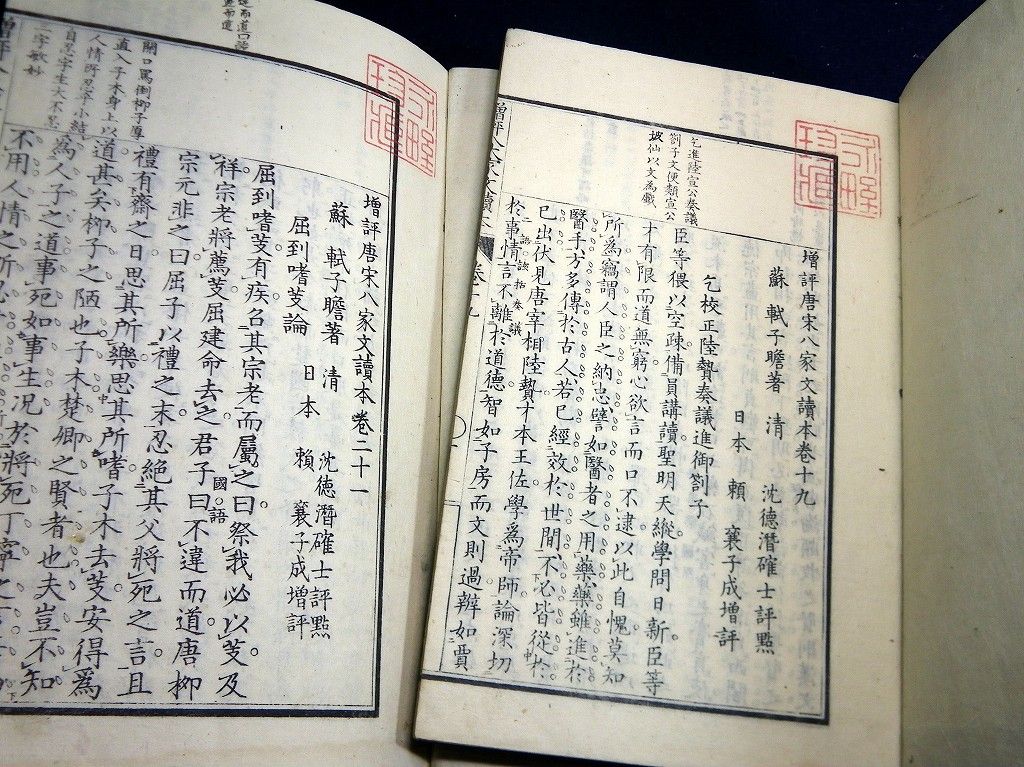 增評唐宋八家文讀本卷十九
蘇軾子瞻著 清 沈德潛確士評點
日本 賴 襄子成增評
乞校正陸贄奏議進御劄子
臣等猥以空疎備員講讀聖明天縱學問日新臣等
才有限而道無窮心欲言而口不逮以此自愧莫知
所爲竊謂人臣之納忠譬如醫者之用藥藥雖進於
醫手方多傳於古人若已經效於世間不必皆從於
已出伏見唐宰相陸贄才本王佐學爲帝師論深切
於事情言不離於道德智如子房而文則過辨如賈
乞進陸宣公奏議
劄子文便類宣公
坡仙以文為戲
二語該括奏議
增評唐宋八家文讀本卷二十一
蘇軾子瞻著 清 沈德潛確士評點
日本 賴 襄子成增評
屈到嗜芰論
屈到嗜芰有疾召其宗老而屬之曰祭我必以芰及
祥宗老將薦芰屈建命去之君子曰不違而道唐柳
國語
宗元非之曰屈子以禮之末忍絕其父將死之言且
禮有齋之日思其所樂思其所嗜子木去芰安得爲
道甚矣柳子之陋也子木楚卿之賢者也夫豈不知
爲人子之道事死如事生况於將死丁寧之
不用人情之所忍
開口罵倒柳子厚
直入子木身上以
人情所忍
自忍字生大不忍
三字敏妙